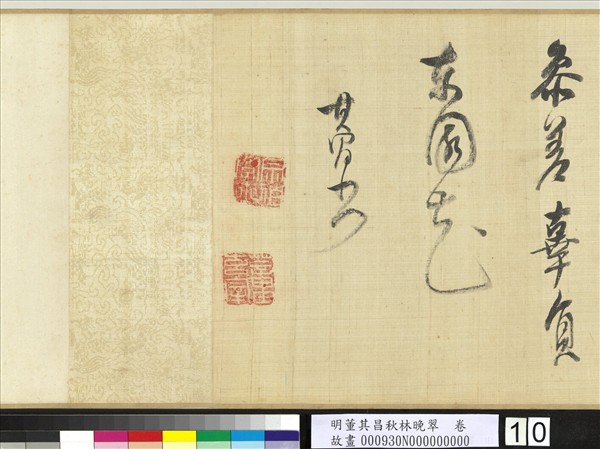 参差辜負
東園花
其昌書
明董其昌秋林晚翠　卷
故畫 000930N000000000
10